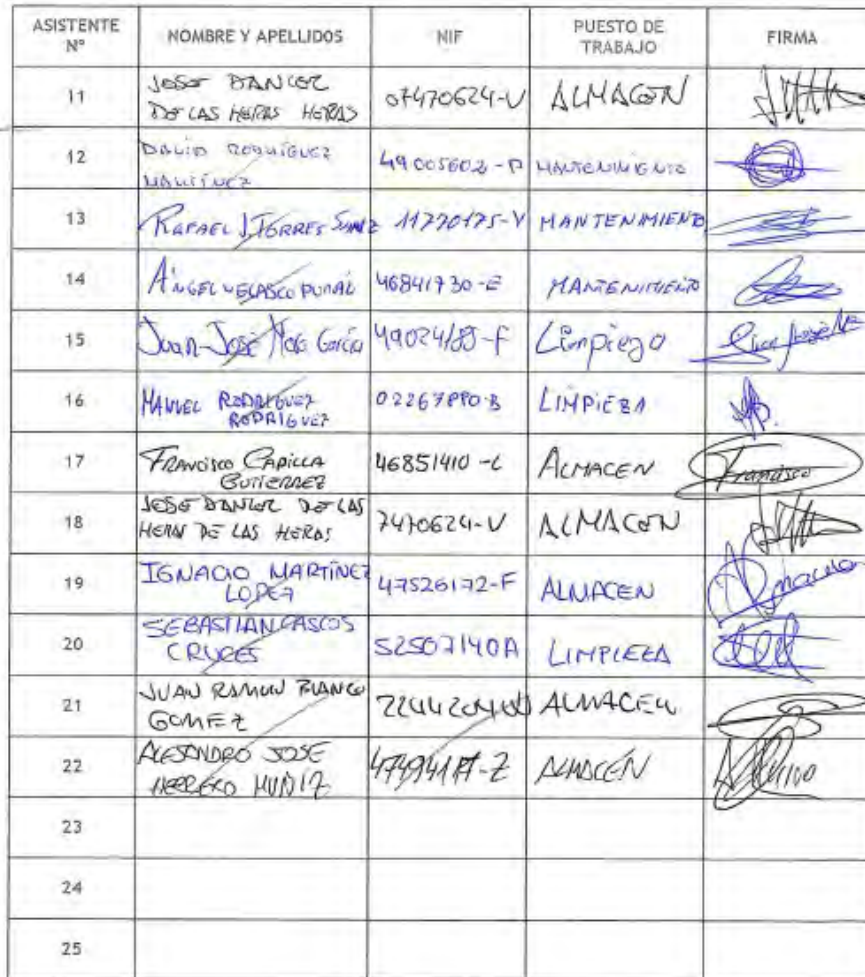 ASISTENTE Nº NOMBRE Y APELLIDOS NIF PUESTO DE TRABAJO FIRMA
11 JOSE DANIEL DE LAS HERAS HERAS 07470624-V ALMACEN
12 DAVID RODRIGUEZ MARTINEZ 49005602-P MANTENIMIENTO
13 RAFAEL J. TORRES 11770175-V MANTENIMIENTO
14 ÁNGEL VELASCO DURAÑ 46841730-E MANTENIMIENTO
15 Juan-José García Limpieza
16 MANUEL RODRIGUEZ RODRIGUEZ LIMPIEZA
17 FRANCISCO CAPILLA GUTIERREZ 46851410-L ALMACEN Francisco
18 JOSE DANIEL DE LAS HERAS DE LAS HERAS 7470624-V ALMACEN
19 IGNACIO MARTÍNEZ LOPEZ 47526172-F ALMACEN
20 SEBASTIAN CASCOS CRUCES 52507140A LIMPIEZA
21 JUAN RAMON BLANCO GOMEZ ALMACEN
22 ALEJANDRO JOSE HERRERO MUÑIZ ALMACÉN
23
24
25